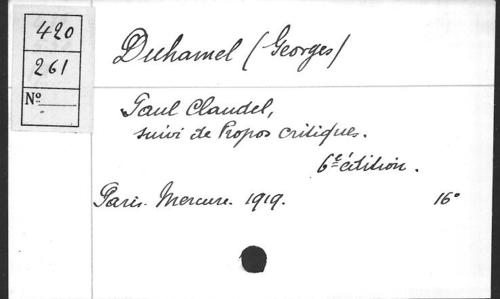 420
261
N°
Duhamel (Georges)
Paul Claudel,
suivi de Propos critiques.
6e édition.
Paris. Mercure. 1919. 16°